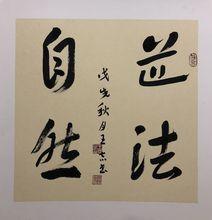 道法
自然
戊戌秋月王